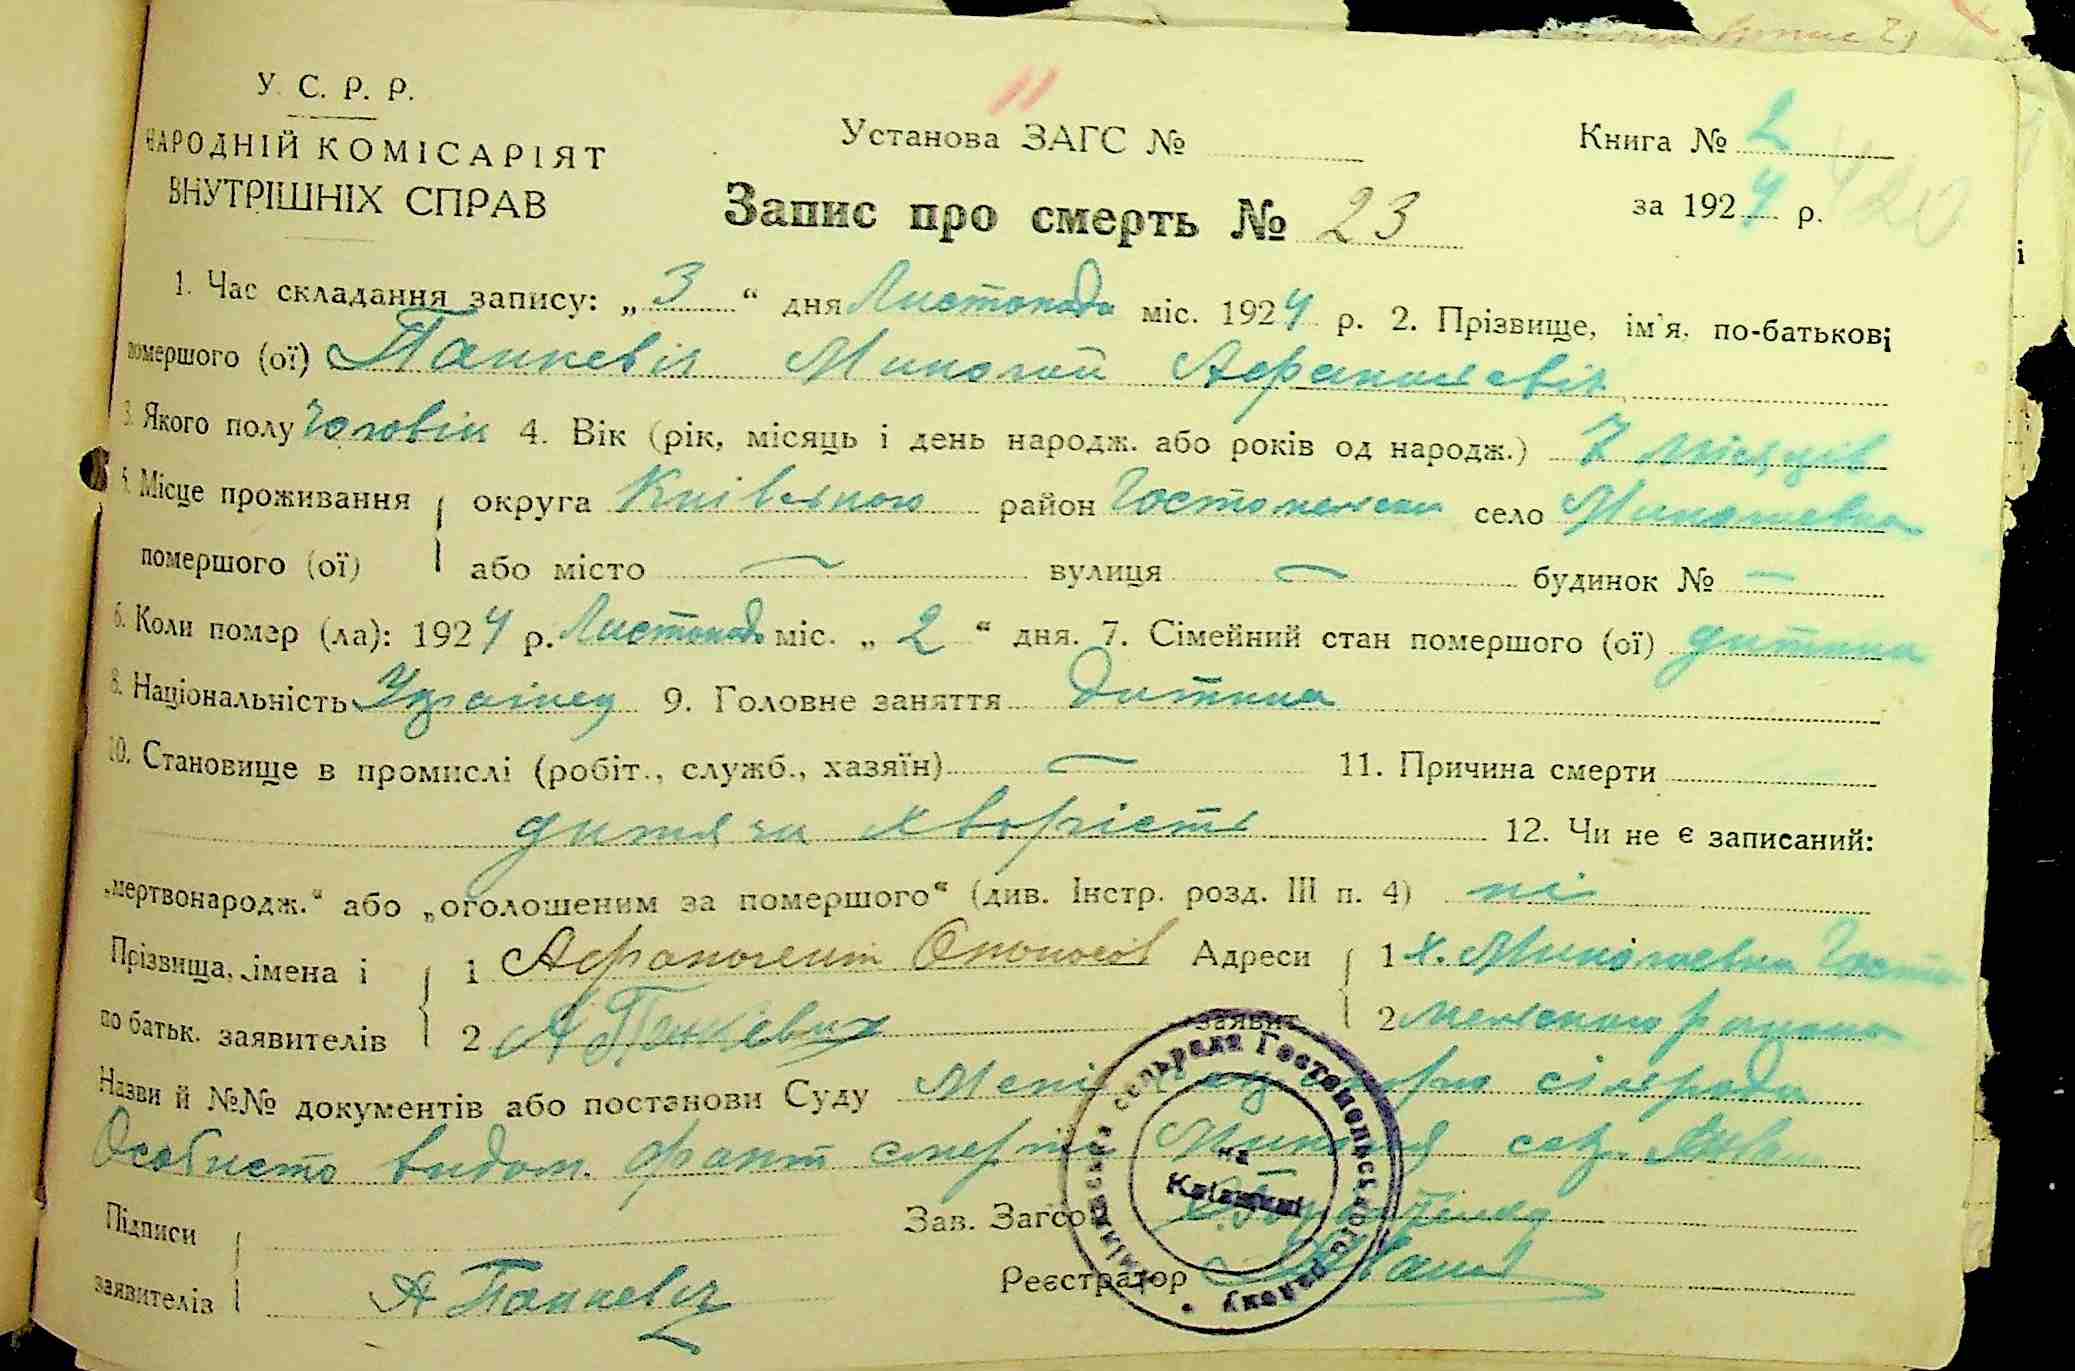 У. С. Р. Р.
НАРОДНІЙ КОМІСАРІЯТ
ВНУТРІШНІХ СПРАВ
Установа ЗАГС №
Книга № 2
за 1924 р.
Запис про смерть № 23
1. Час складання запису: „3“ дня Листопада міс. 1924 р. 2. Прізвище, ім'я, по-батькові
помершого (ої) Панкевіч Миколай Афанасієвіч
3. Якого полу Чоловік 4. Вік (рік, місяць і день народж. або років од народж.) 7 місяців
5. Місце проживання округа Київською район Гостомельськ село Миколаевка
помершого (ої) або місто — вулиця — будинок № —
6. Коли помер (ла): 1924 р. Листопада міс. „2“ дня. 7. Сімейний стан помершого (ої) дитина
8. Національність Українец 9. Головне заняття дитина
10. Становище в промислі (робіт., служб., хазяїн) — 11. Причина смерти
дитяча хворість 12. Чи не є записаний:
„мертвонародж.“ або „оголошеним за помершого“ (див. Інстр. розд. III п. 4) ні
Прізвища, імена і 1 Адреси 1 х. Миколаевка Госто
по батьк. заявителів 2 А Панкевич заявит. 2 мельского району
Назви й №№ документів або постанови Суду Мені сільради
Особисто видом. факт смерті
Підписи Зав. Загсо
заявителів А Панкевич Реєстратор
сельрада Гостомельського району
на
Київщині